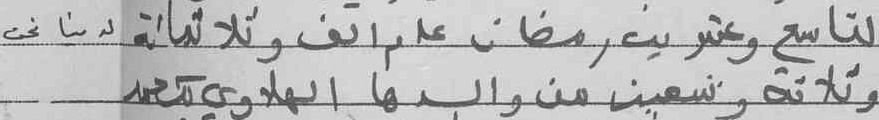 لتاسع وعشرين رمضان عام الف وثلاثمائة
وثلاثة وتسعين من والدها الهلاوي محمد